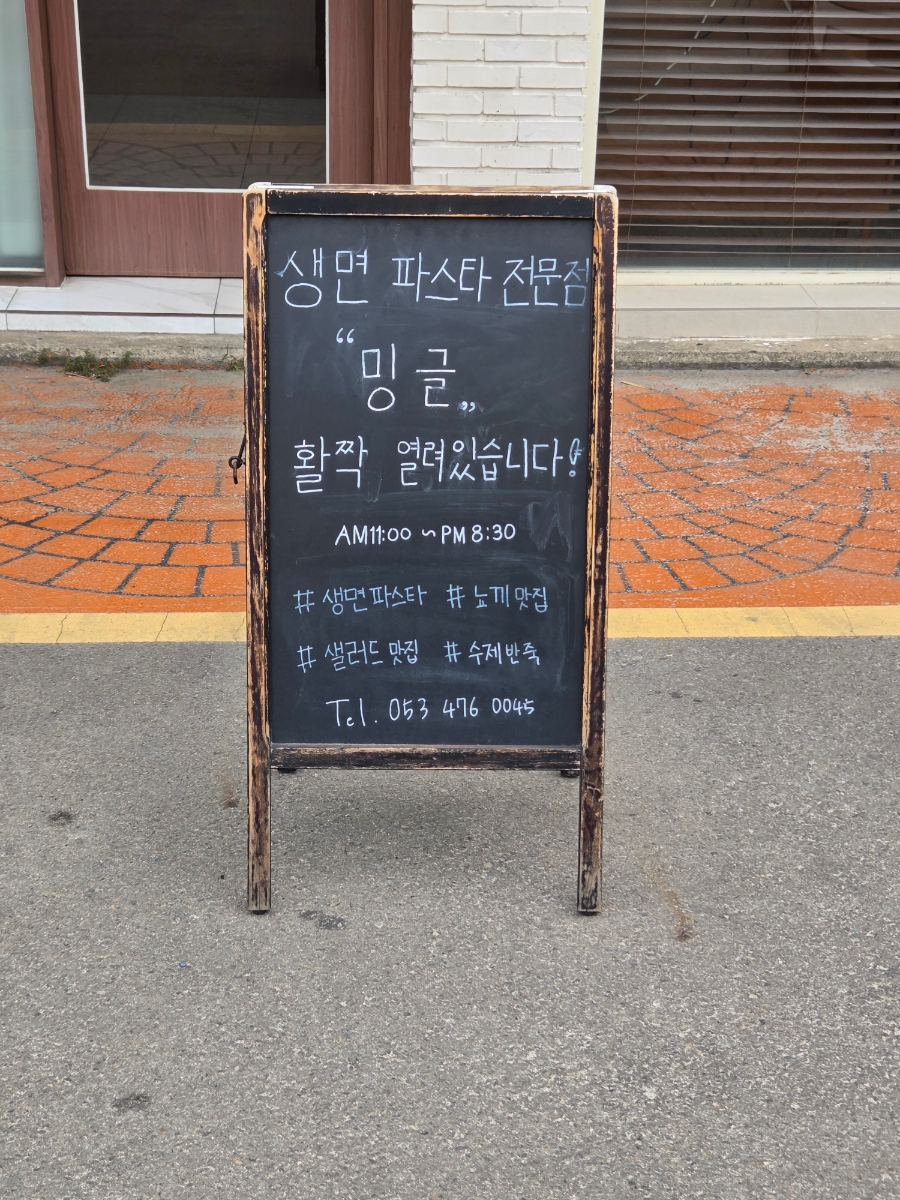 생면 파스타 전문점
“밍글„
활짝 열려있습니다!
AM11:00 ~ PM 8:30
# 생면파스타 # 뇨끼 맛집
# 샐러드 맛집 # 수제반죽
Tel. 053 476 0045